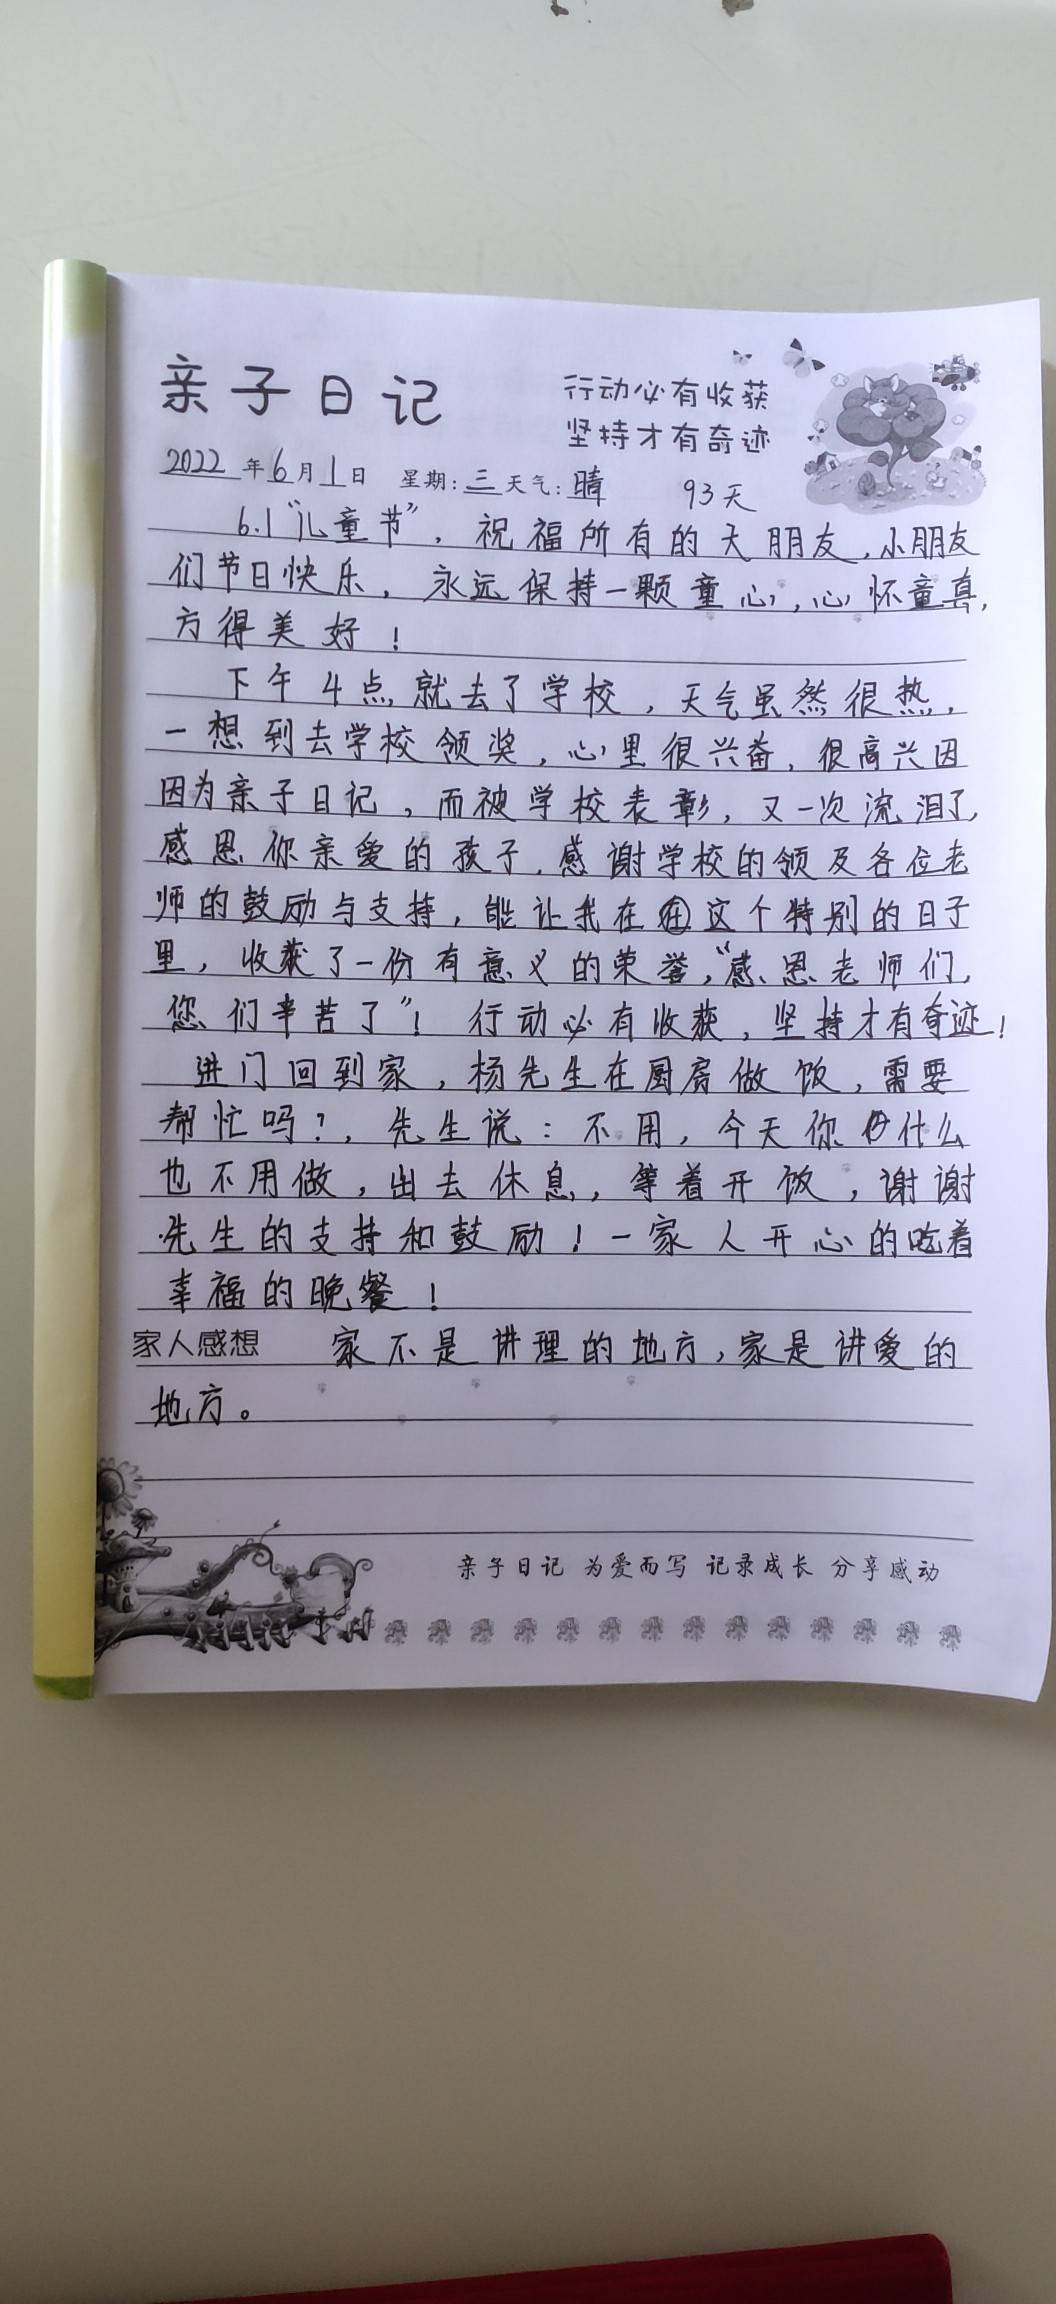 亲子日记
行动必有收获
坚持才有奇迹
2022年6月1日 星期:三天气:晴 93天
6.1“儿童节”,祝福所有的大朋友,小朋友
们节日快乐,永远保持一颗童心,心怀童真,
方得美好!
下午4点就去了学校,天气虽然很热,
一想到去学校领奖,心里很兴奋,很高兴因
因为亲子日记,而被学校表彰,又一次流泪了,
感恩你亲爱的孩子,感谢学校的领及各位老
师的鼓励与支持,能让我在在这个特别的日子
里,收获了一份有意义的荣誉,“感恩老师们,
您们辛苦了”!行动必有收获,坚持才有奇迹!
进门回到家,杨先生在厨房做饭,需要
帮忙吗?,先生说:不用,今天你什么
也不用做,出去休息,等着开饭,谢谢
先生的支持和鼓励!一家人开心的吃着
幸福的晚餐!
家人感想 家不是讲理的地方,家是讲爱的
地方。
亲子日记 为爱而写 记录成长 分享感动